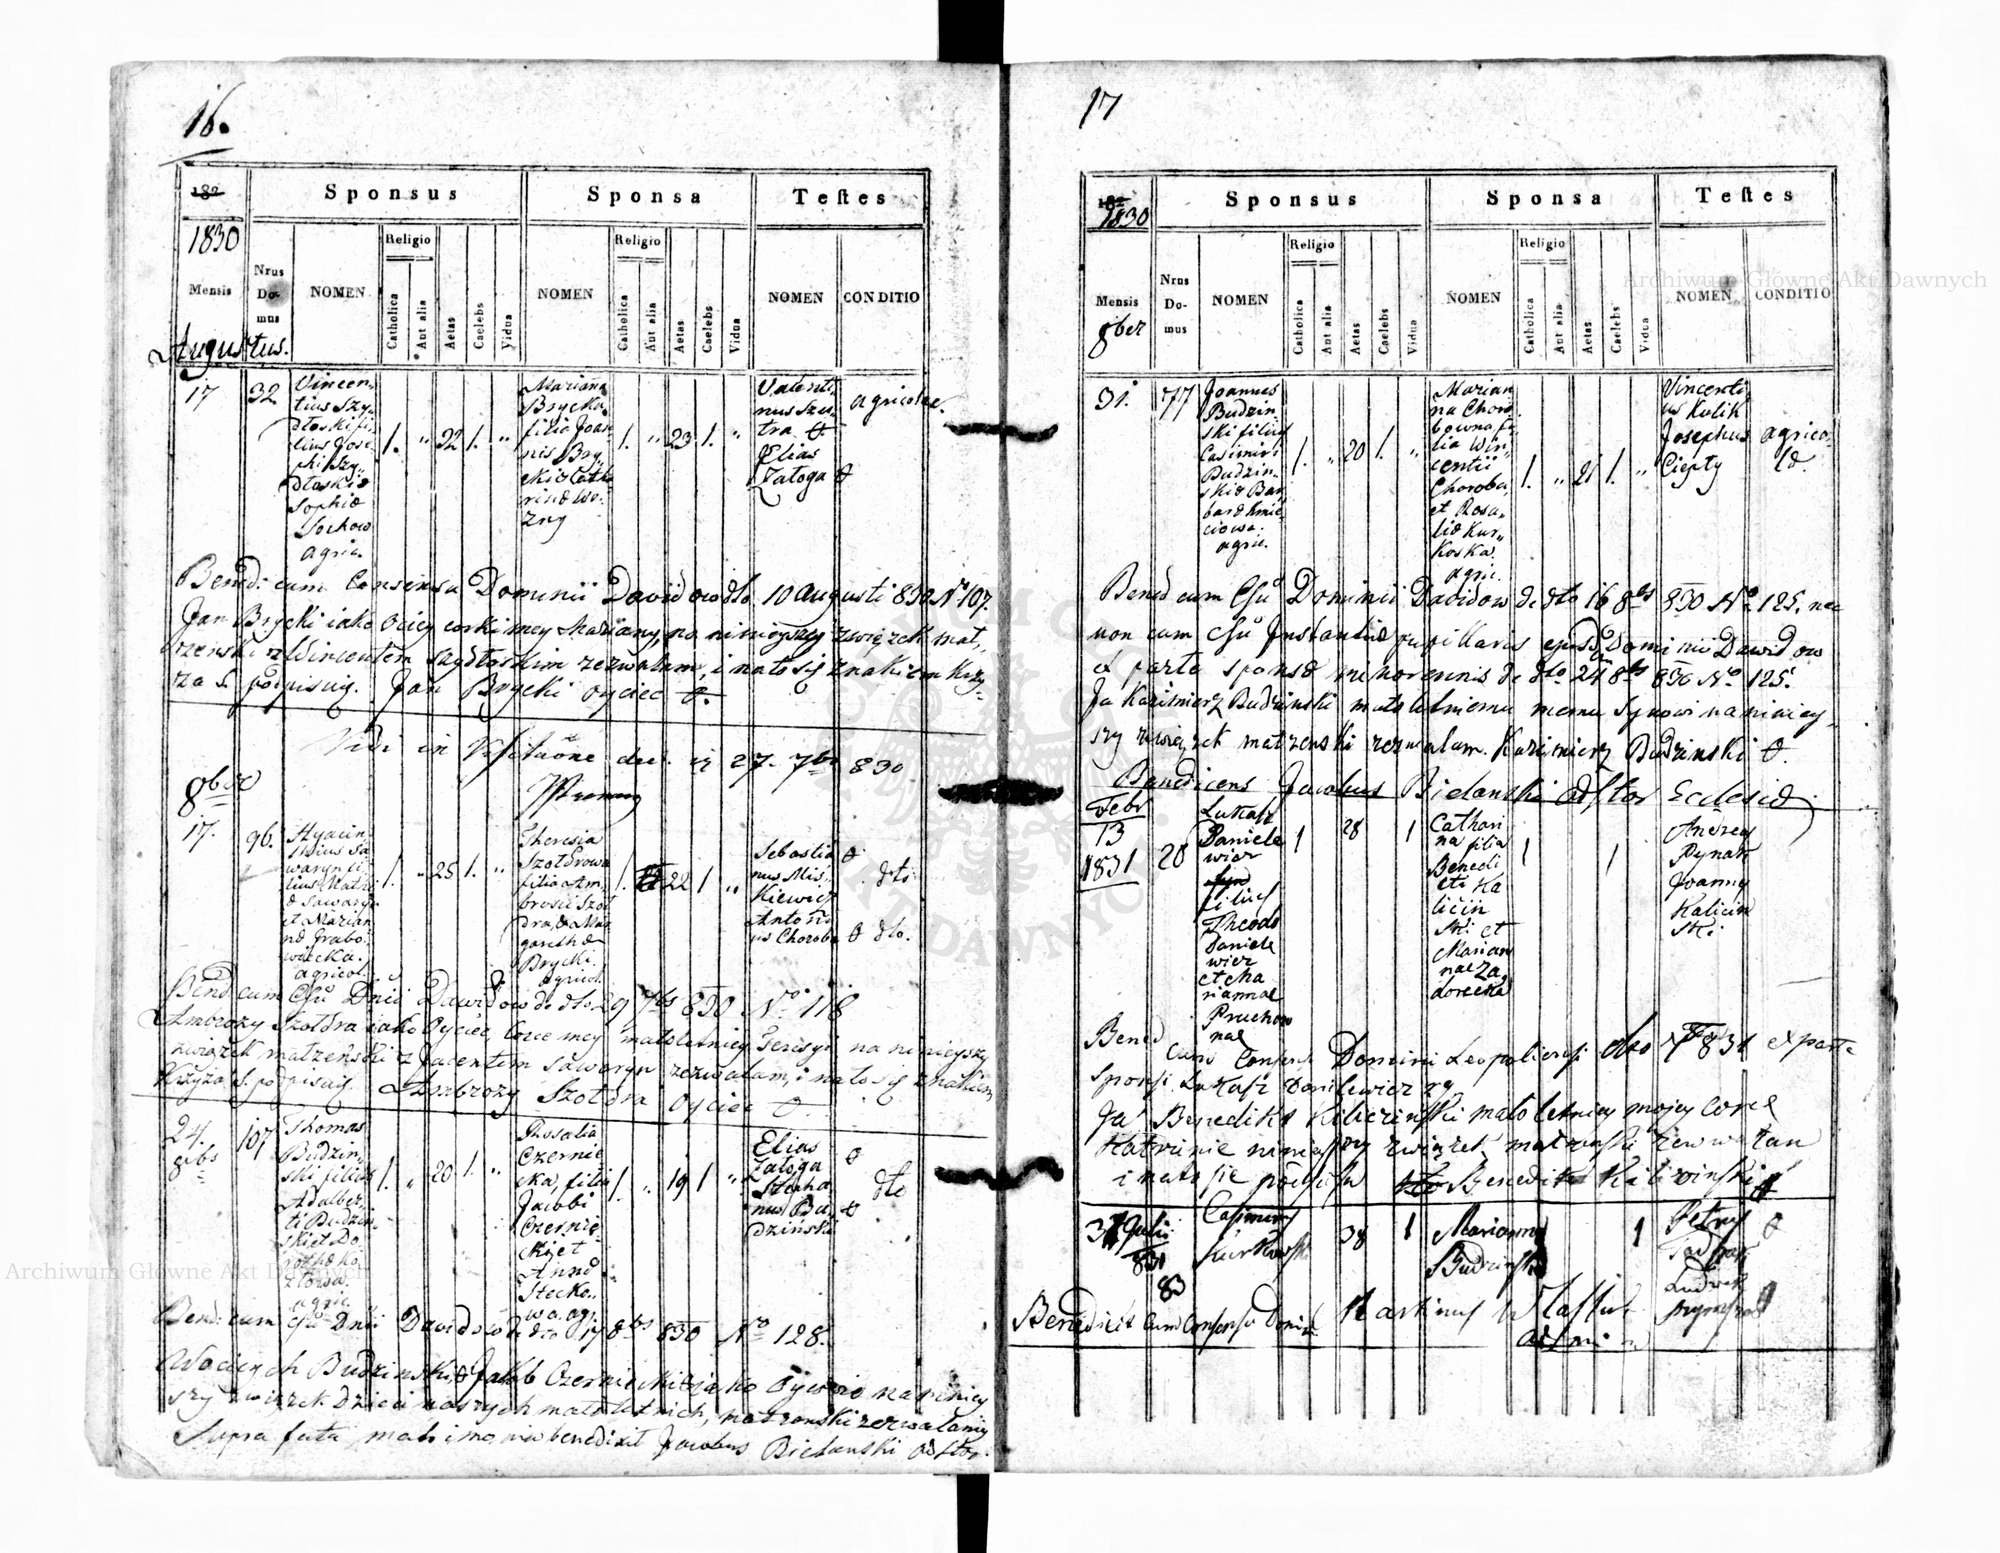 16.
182
Sponsus
Sponsa
Testes
1830
Mensis
Nrus Domus
NOMEN
Religio
Catholica
Aut alia
Aetas
Caelebs
Vidua
NOMEN
Religio
Catholica
Aut alia
Aetas
Caelebs
Vidua
NOMEN
CONDITIO
Augustus.
17
32
Vincen,
tius Szy,
dłoski fi,
lius Jose
phi Szy,,
dłoski &
Sophiae
Sochow
agric.
1.
"
22
1.
"
Marianna
Brycka
filia Joan
nis Bry
cki & Cath
rinae Wo
zny
1.
"
23
1.
"
Valenti
nus Szu
tra
Elias
Załoga
agricolae.
Bened: cum Consensu Dominii Dawidow dto 10 Augusti 830 N 107.
Jan Brycki iako Ociec corki mey Maryanny, na ninieyszy związek mał,
zenski z Wincentem Szydłoskim zezwalam, i na to się znakiem krzy
za S. podpisuię. Jan Brycki oyciec
Vidi in Visitaōne dec. 27. 7br 830
8bris
17.
96.
Hyacin
thius Sa
waryn fi
lius Matia
& Sawaryn
et Marian
nae Grabo
wiecka.
agricol.
1.
"
25
1.
"
Theresia
Szoldrowa
filia Am
brosii Szoł
dra, & Mar
garethae
Brycki.
agricol.
1.
22
1
"
Sebastia
nus Mis
kiewicz
Antoni
us Choroba
dto
dto.
Bend cum Csu Dnii Dawidow de dto 29 7bs 830 N° 118
Ambrozy Szołdra iako Oyciec Corce mey małoletniey Teresyi na ninieyszy
związek małzeński z Jacentem Sawaryn zezwalam, i na to się znakiem
Krzyża S. podpisuię. Ambrozy Szołdra Oyciec
24.
8bris
107
Thomas
Budzin,
ski filius
Adalber,
ti Budzin
ski et Do
rothae Ko
ztorsa.
agric.
1.
"
20
1.
"
Rosalia
Czernie
cka, filia
Jacobi
Czernie
cki et
Annae
Stecko..
wa. agr.
1.
"
19
1
"
Elias
Załoga
Stepha
nus Bu,
dziński
dto
Bend: cum Csu Dnii Dawidow de dto 17 8bs 830 N° 128.
Woyciech Budzinski & Jakob Czerniecki iako Oycowie na niniey
szy związek dzieci naszych małoletnich, małzenski zezwalamy
Supra fata matrimonia benedixit Jacobus Bielanski adstor.
17
182
1830
Sponsus
Sponsa
Testes
Mensis
8ber
Nrus Domus
NOMEN
Religio
Catholica
Aut alia
Aetas
Caelebs
Vidua
NOMEN
Religio
Catholica
Aut alia
Aetas
Caelebs
Vidua
NOMEN
CONDITIO
31.
77
Joannes
Budzin
ski filius
Casimiri
Budzin
ski & Bar
barae Kmie
ciowa.
agric.
1.
"
20
1.
"
Marian
na Choro
bowna fi
lia Vin
centii
Choroba,
et Rosa,
liae Kur,,
koska.
agric.
1.
"
21
1.
"
Vincenti
us Kulik
Josephus
Ciepły
agrico
lae.
Bened cum Csu Dominii Dawidow de dto 16 8bs 830 N° 125. nec
non cum Csu Instantiae pupillaris ejusd Dominii Dawidow
ex parte sponsae minorennis de dto 24 8bs 830 N° 125.
Ja Kazimierz Budzinski małoletniemu memu Synowi na niniey,
szy związek małzenski zezwalam. Kazimierz Budzinski
Benedicens Jacobus Bielanski adstor Ecclesiae
Febr
13
1831
20
Lukasz
Daniele
wicz
filius
Theodo
Daniele
wicz
et Ma
riannae
Pruchow
nae
1
28
1
Cathari
na filia
Benedi
cti Ka
liciin
ski et
Marian
nae Za
dorecka
1
1
Andrey
Rynak
Joanny
Kalicin
ski
Bened cum Consens Dominii Leopoliensi dto 831 ex parte
sponsi Lukasz Danilewicz
Ja Benedikt Kiliczinski małoletniey mojey corce
Katrinie niniejszy związek malzenski zezwalam
i na to się podpisuię Benedikt
31 Julii
831
83
Casimirus
38
1
Marianna
Budzinska
1
Petrus
Ludwik
Benedixit cum Consensu Domin. Martinus